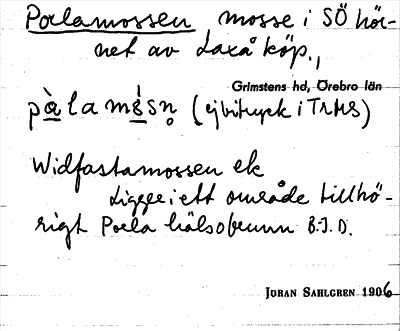 Porlamossen mosse i SÖ hör-
net av Laxå köp.,
Grimstens hd, Örebro län
pὰlamɜ́sn̥ (ej bitryck i TrMS)
Widfastamossen ek
Ligger i ett område tillhö-
rigt Porla hälsobrunn B.J.D.
JÖRAN SAHLGREN 1906